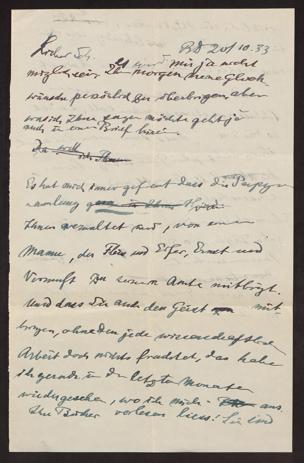 20/10.33
Es wird mir ja nicht
möglich sein, Ihnen morgen meine Glück-
wünsche persönlich zu überbringen, aber
was ich Ihnen sagen möchte geht ja
auch in einen Brief hinein.
Da will
ich Ihnen
Es hat mich immer gefreut dass die Papyrus-
sammlung
Ihnen verwaltet wird, von einem
Manne, der Fleiss und Eifer, Ernst und
Vernunft zu seinem Amte mitbringt.
Und dass Sie auch den Geist mit
bringen, ohne den jede wissenschaftliche
Arbeit doch nichts fruchtet, das habe
ich gerade in den letzten Monaten
wiedergesehen, wo ich mich aus
Ihre Bücher vorlesen liess. Sie sind